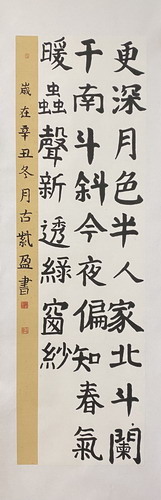 更深月色半人家北斗闌
干南斗斜今夜偏知春氣
暖蟲聲新透綠窗紗
歲在辛丑冬月古紫盈書